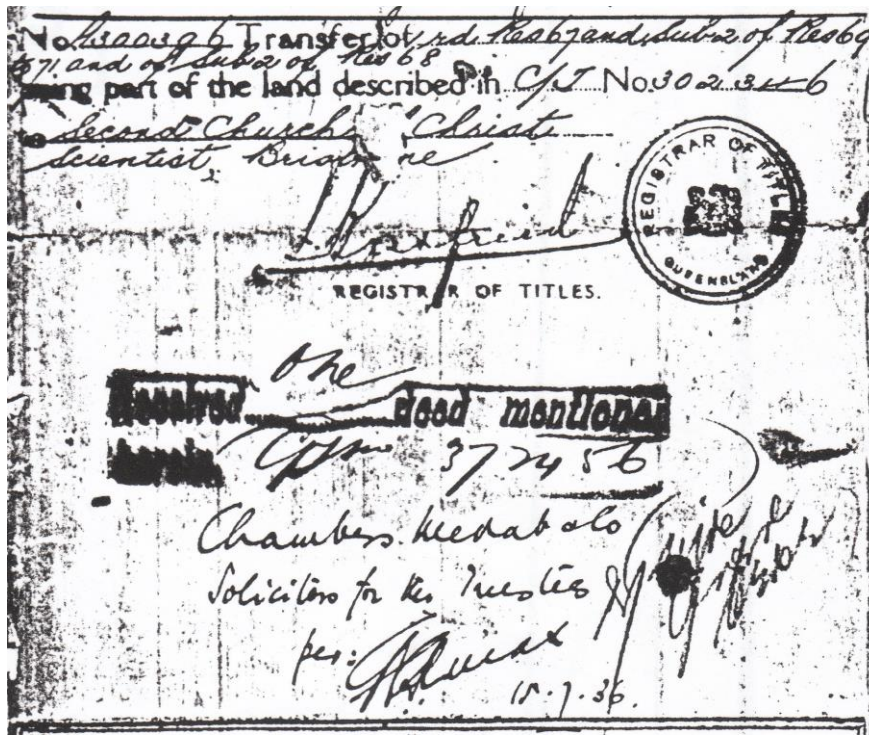 No. A300396 Transfer of rd. Res 67 and Sub 2 of Res 69
& 71 and of Sub 2 of Res 68
being part of the land described in C/T No 302346
to Second Church Christ
Scientist, Brisbane
REGISTRAR OF TITLES.
REGISTRAR OF TITLES
QUEENSLAND
one
Received deed mentioned
herein 372456
Chambers McNab & Co
Solicitors for the Trustees
per:
15.7.36